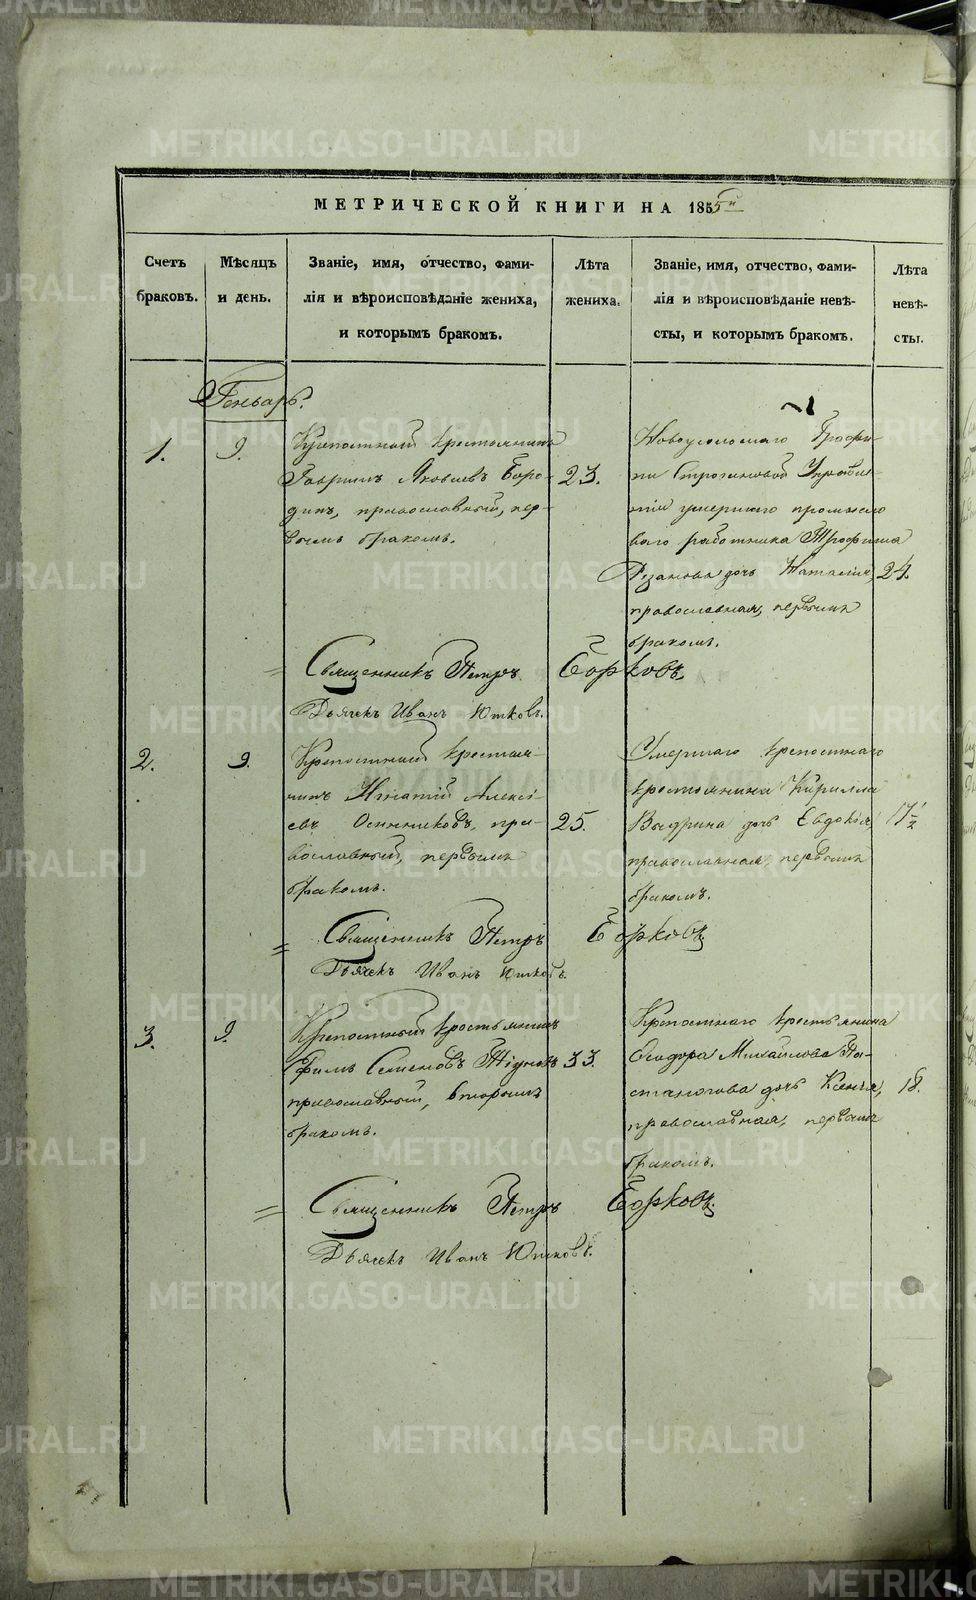 METRIKI.GASO-URAL.RU
МЕТРИЧЕСКОЙ КНИГИ НА 1855й
Счетъ браковъ.
Мѣсяцъ и день.
Званіе, имя, отчество, фами-
лія и вѣроисповѣданіе жениха,
и которымъ бракомъ.
Лѣта жениха.
Званіе, имя, отчество, фами-
лія и вѣроисповѣданіе невѣ-
сты, и которымъ бракомъ.
Лѣта невѣ-
сты.
Генварь.
1.
9.
Крепостный крестьянинъ
Гавриилъ Яковлевъ Боро-
динъ, православный, пер-
вымъ бракомъ.
23.
Новоусольскаго Графи-
ни Строгоновой
умершаго
ваго работника Трофима
Рязанова дочь Наталія,
православная, первымъ
бракомъ.
24.
Священникъ Петръ Борковъ.
Дьячекъ Иванъ Ютковъ.
2.
9.
Крепостный крестья-
нинъ Игнатій Алексі-
евъ Осинниковъ, пра-
вославный, первымъ
бракомъ.
25.
Умершаго крепостнаго
крестьянина Кирилла
Выдрина дочь Евдокія,
православная, первымъ
бракомъ.
17½
Священникъ Петръ Борковъ
Дьячекъ Иванъ Ютковъ.
3.
9.
Крепостный крестьянинъ
Семеновъ
православный, вторымъ
бракомъ.
33.
Крепостнаго крестьянина
Михайлова Па-
станогова дочь Ксенія,
православная, первымъ
бракомъ.
18.
Священникъ Петръ Борковъ.
Дьячекъ Иванъ Ютковъ.